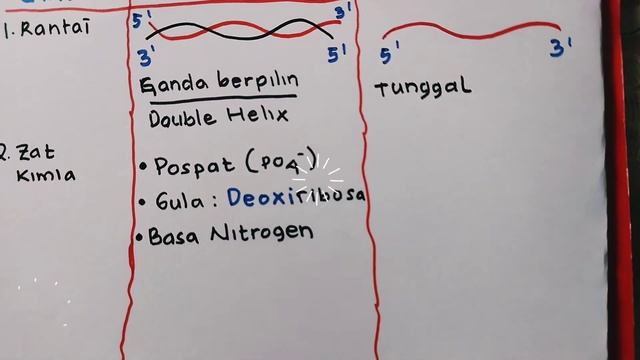 1. Rantai
5' 3'
3' 5'
5' 3'
Ganda berpilin
Double Helix
Tunggal
2. Zat
Kimia
• Pospat (PO4-)
• Gula : Deoxiribosa
• Basa Nitrogen